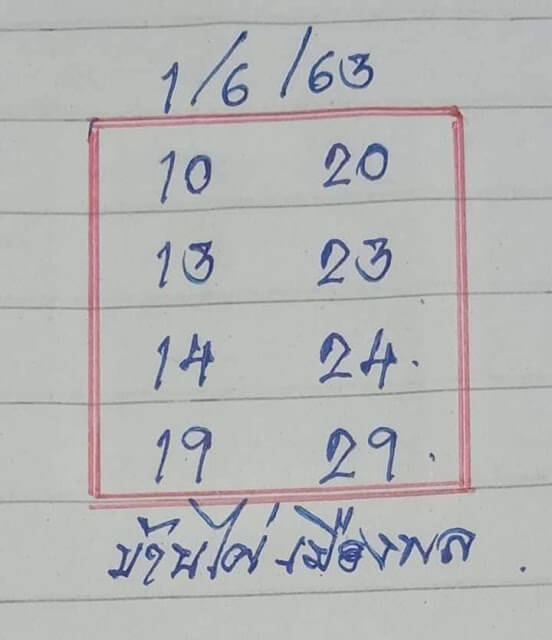 1/6/63
10 20
13 23
14 24.
19 29.
บ้านไผ่ เมืองพล.